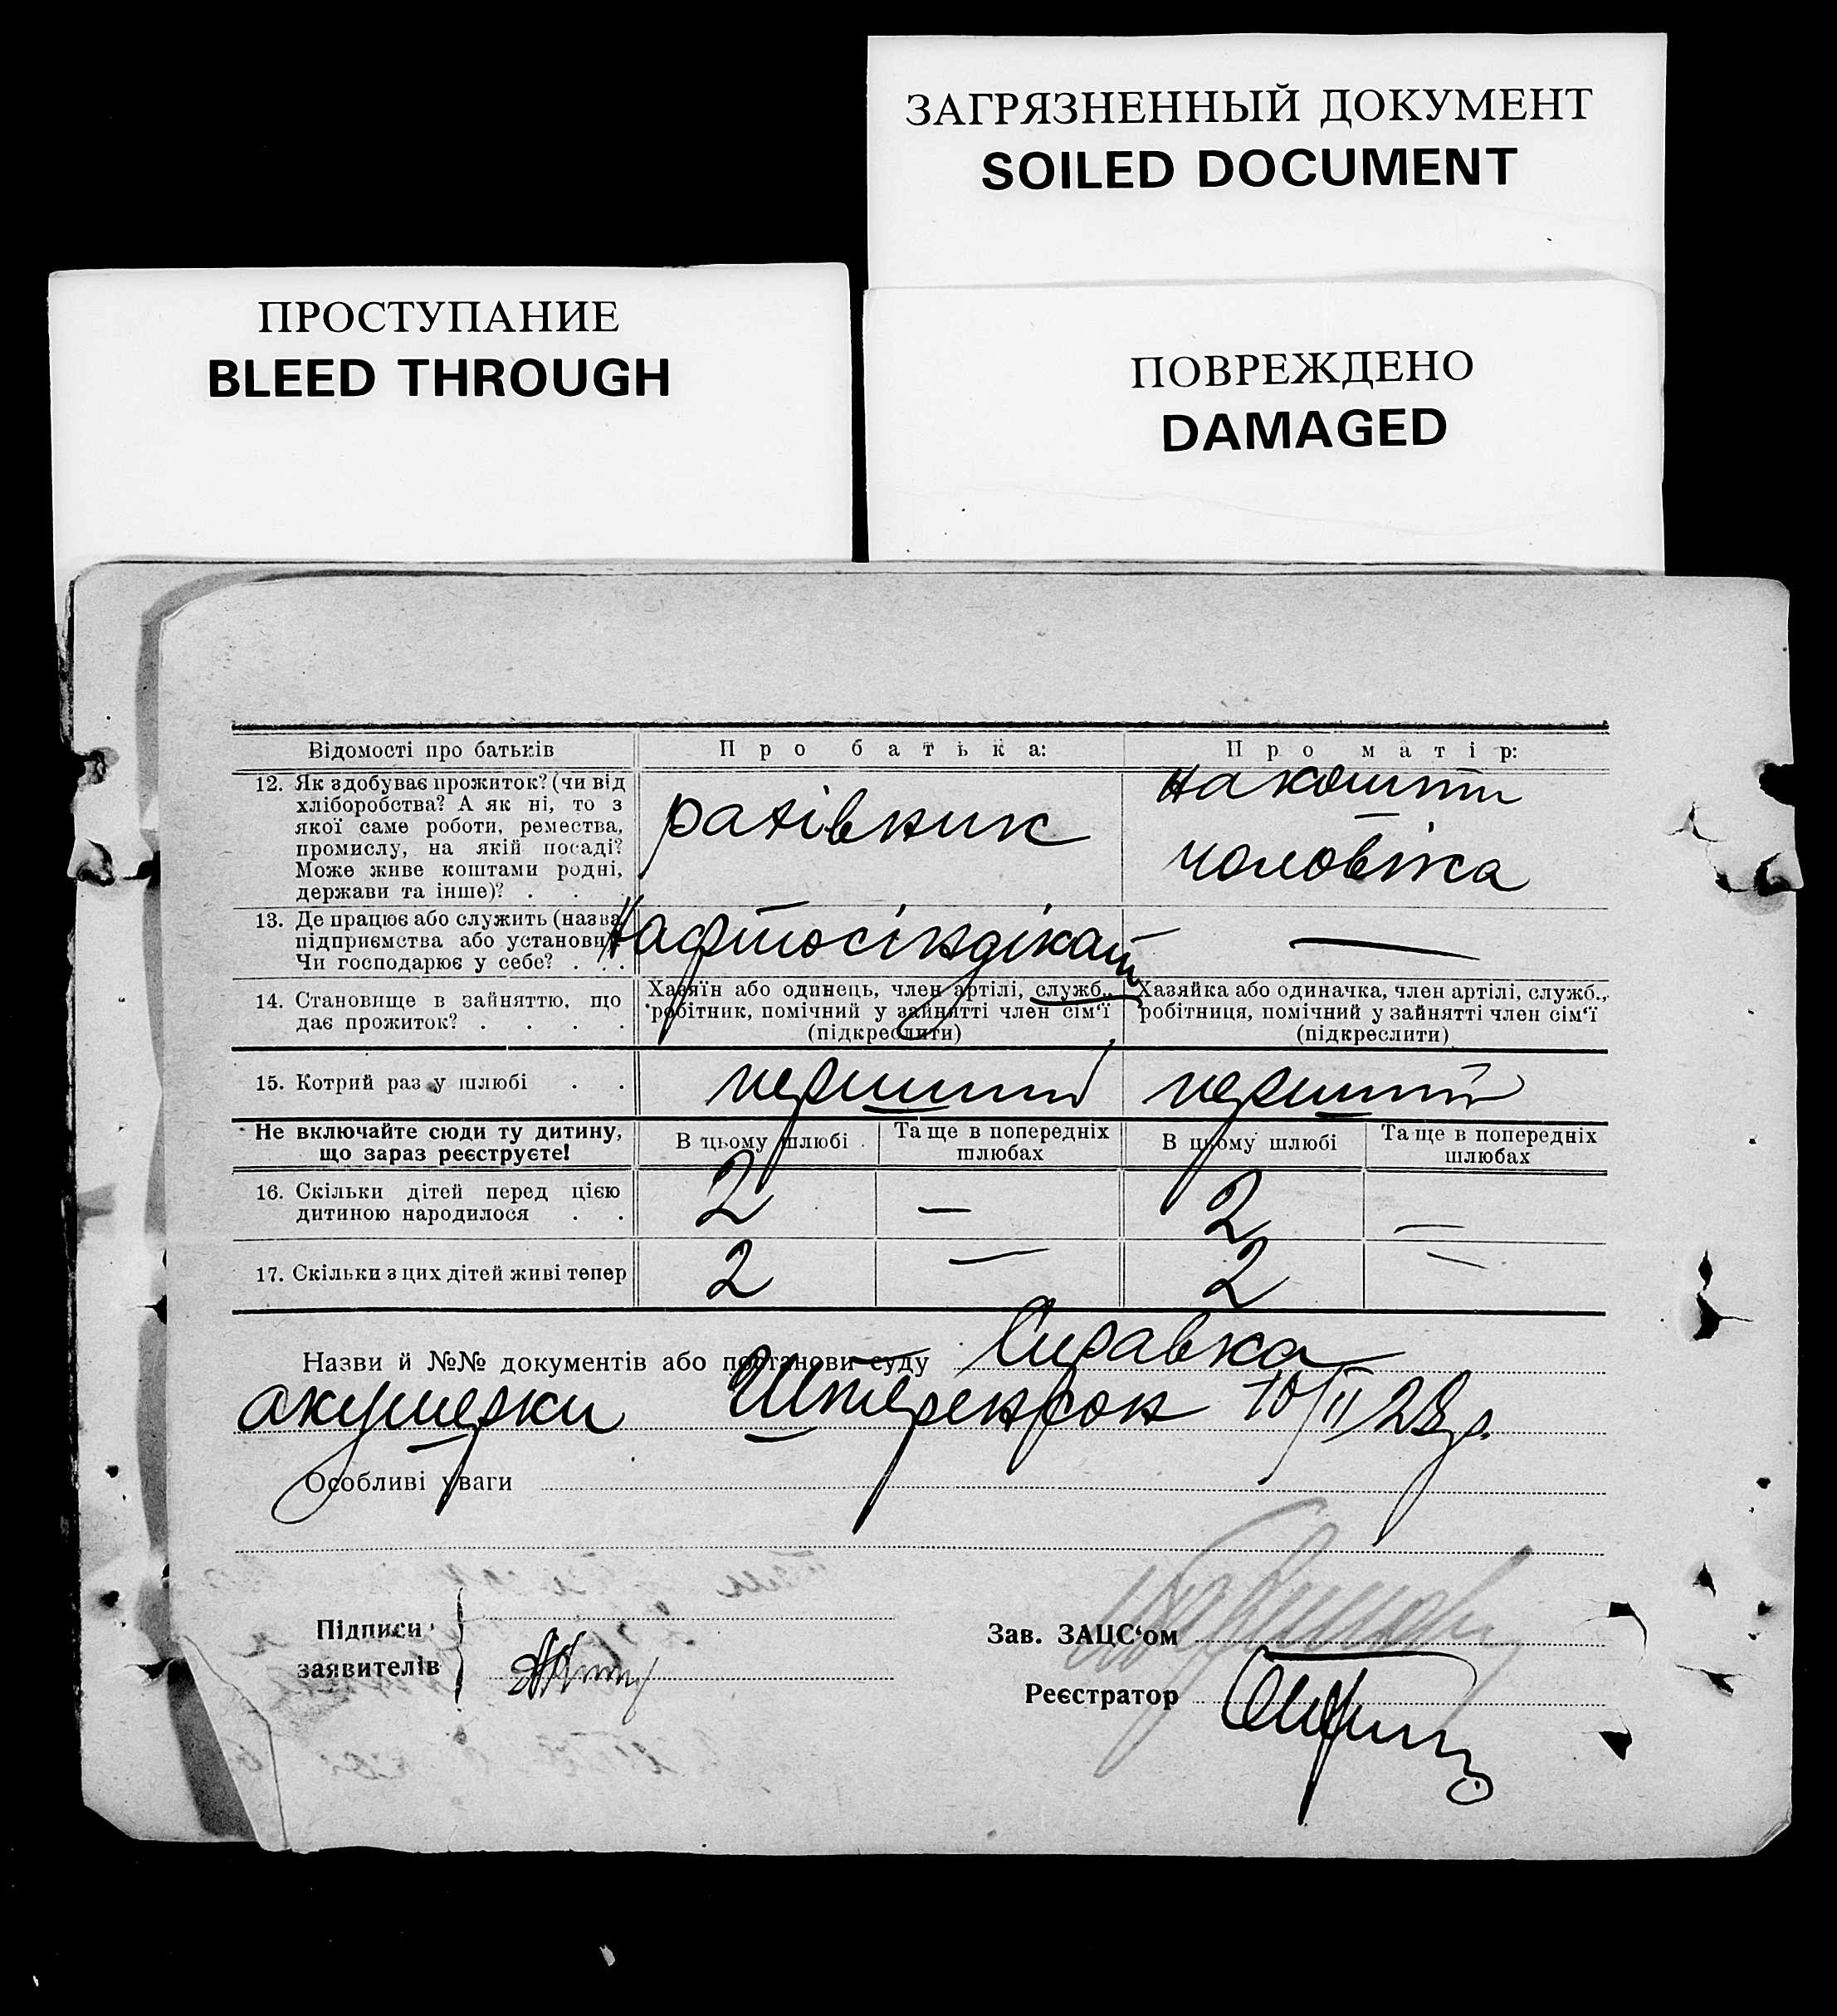 ЗАГРЯЗНЕННЫЙ ДОКУМЕНТ
SOILED DOCUMENT
ПРОСТУПАНИЕ
BLEED THROUGH
ПОВРЕЖДЕНО
DAMAGED
Відомості про батьків
Про батька:
Про матір:
12. Як здобуває прожиток? (чи від
хліборобства? А як ні, то з
якої саме роботи, ремества,
промислу, на якій посаді?
Може живе коштами родні,
держави та інше)? . . .
рахівник
на кошти
чоловіка
13. Де працює або служить (назва
підприємства або установи)?
Чи господарює у себе? . . .
Нафтосіндікат
—
14. Становище в зайняттю, що
дає прожиток? . . . .
Хазяїн або одинець, член артілі, служб.,
робітник, помічний у зайнятті член сім'ї
(підкреслити)
Хазяйка або одиначка, член артілі, служб.,
робітниця, помічний у зайнятті член сім'ї
(підкреслити)
15. Котрий раз у шлюбі . .
перший
перший
Не включайте сюди ту дитину,
що зараз реєструєте!
В цьому шлюбі
Та ще в попередніх
шлюбах
В цьому шлюбі
Та ще в попередніх
шлюбах
16. Скільки дітей перед цією
дитиною народилося . .
2 — 2 —
17. Скільки з цих дітей живі тепер
2 — 2 —
Назви й №№ документів або постанови суду Справка
акушерки Штеренфон 10/II 28 р.
Особливі уваги
Підписи
заявителів
Зав. ЗАЦС'ом
Реєстратор